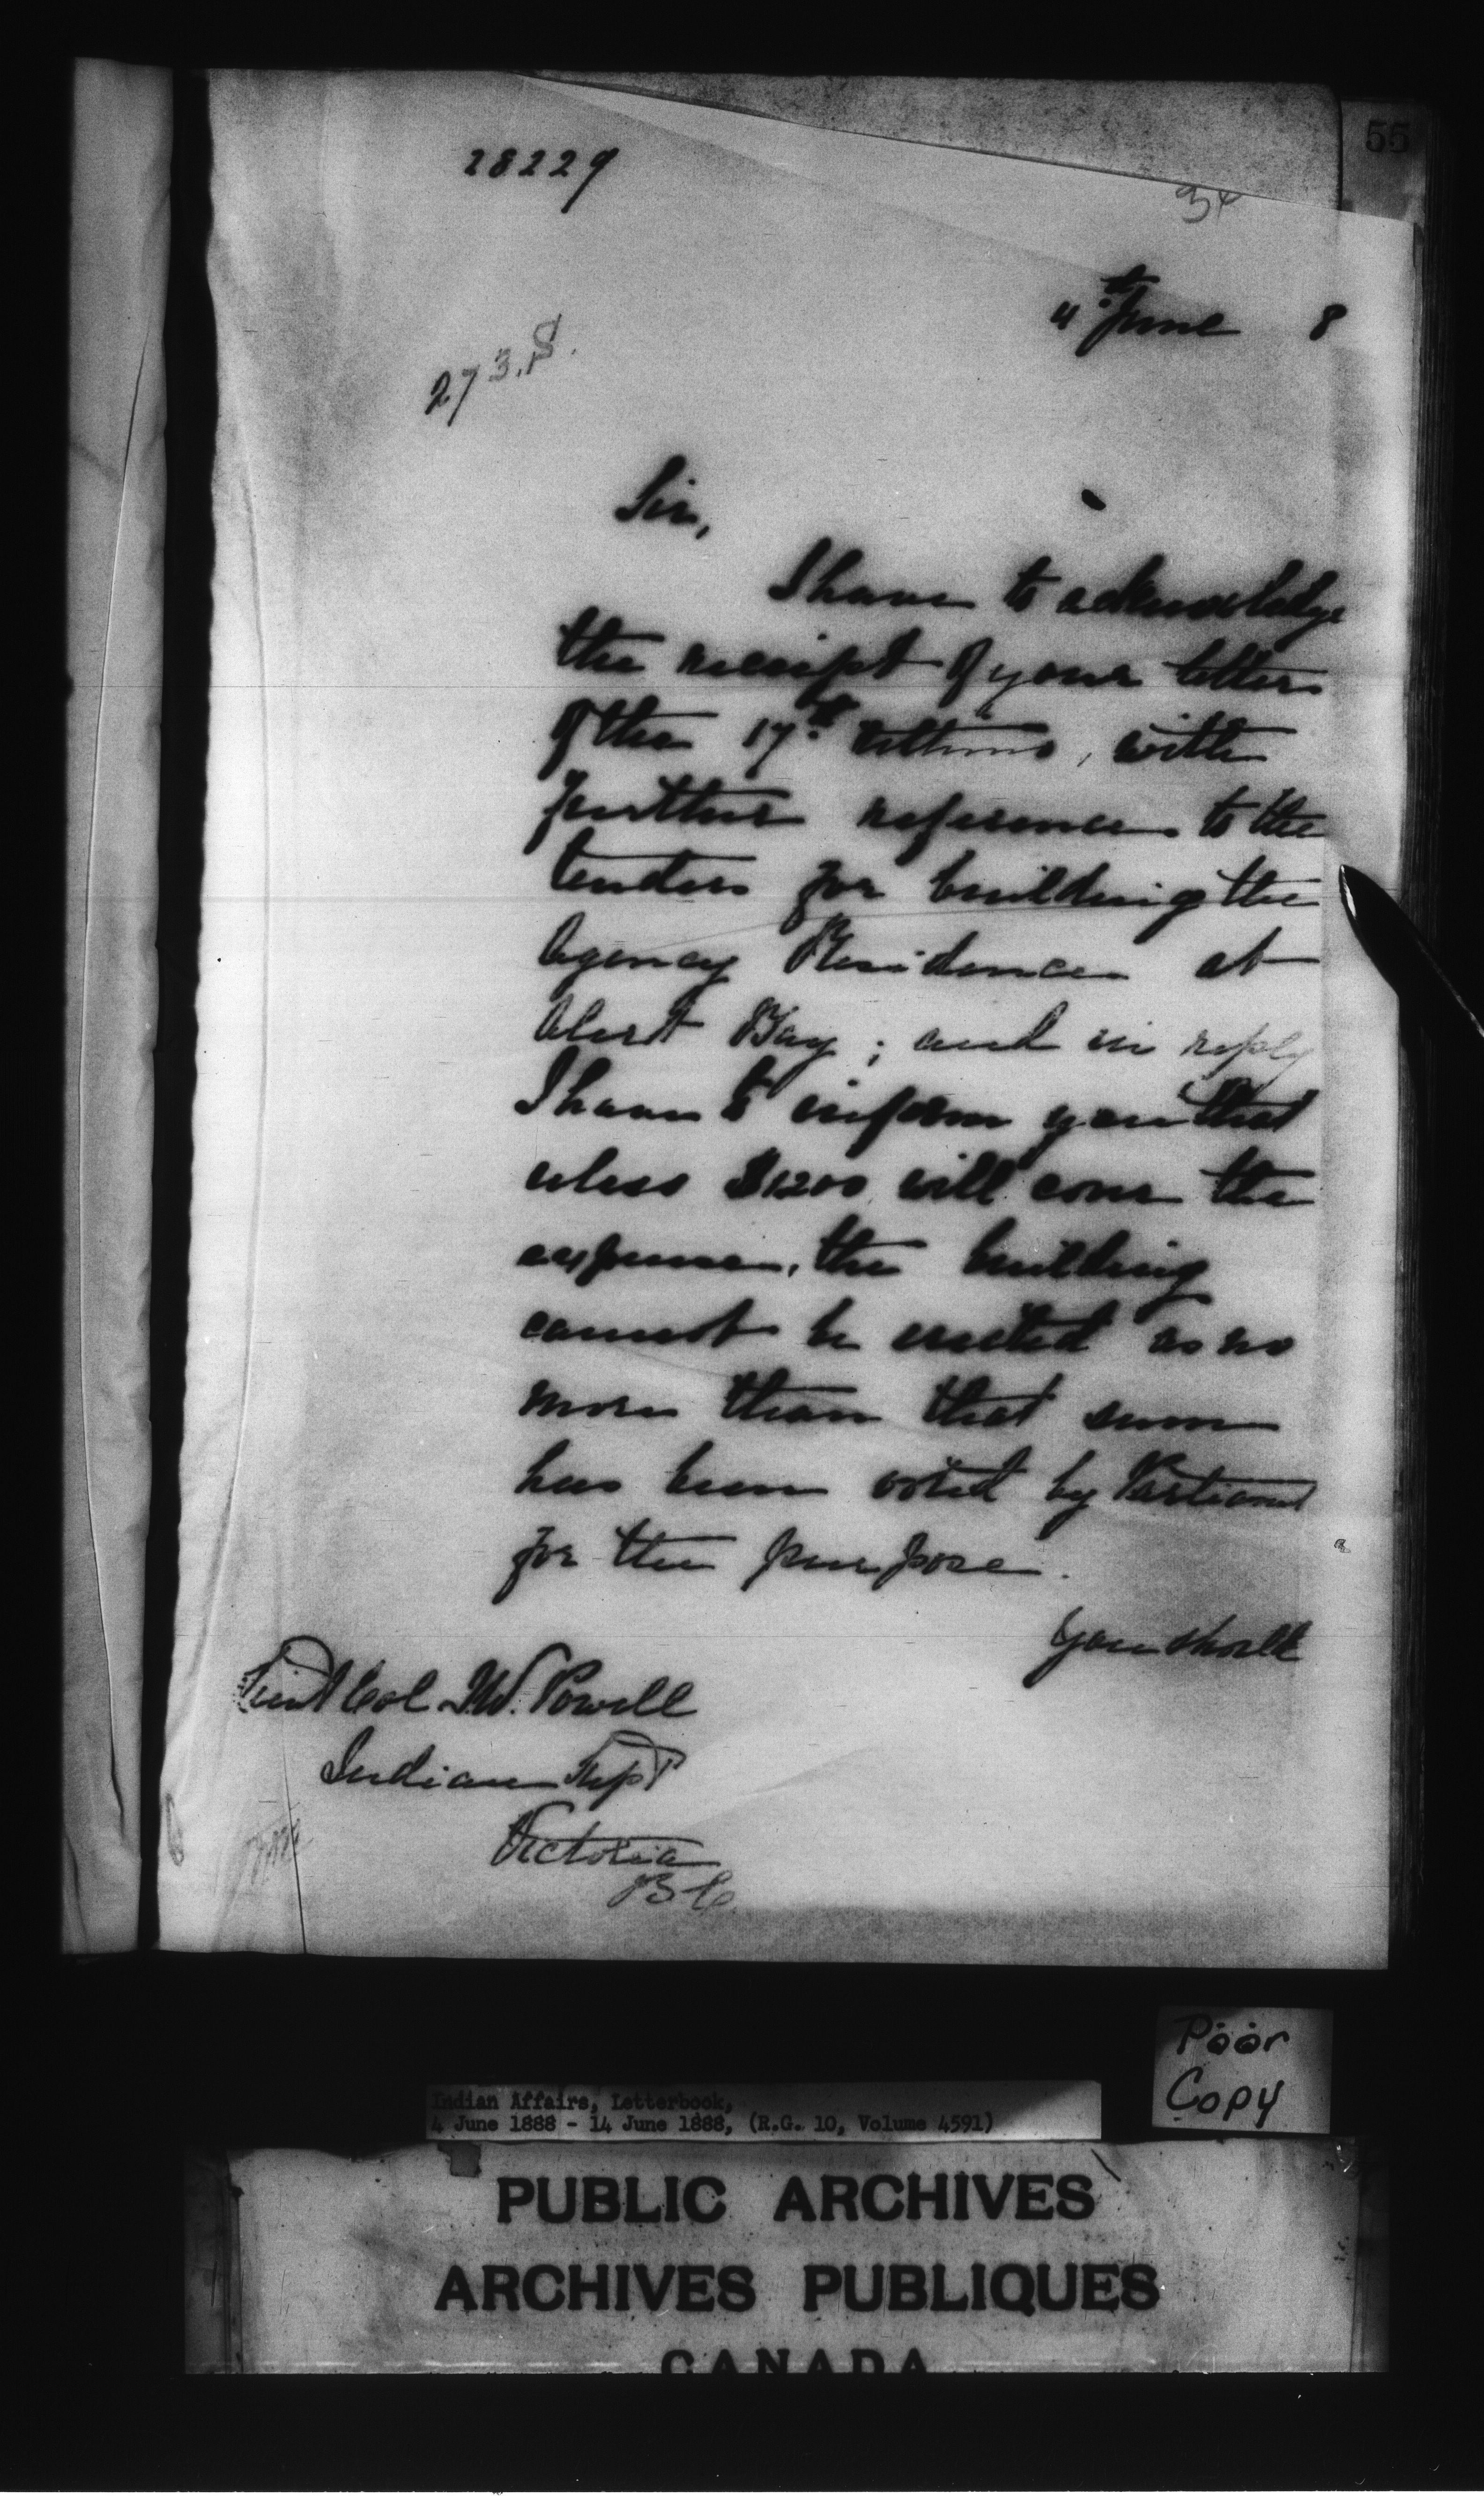 55
28229
34
4th June 8
273.S.
Sir,
I have to acknowledge
the receipt of your letter
of the 17th ultimo, with
further reference to the
tenders for building the
Agency Residence at
Alert Bay; and in reply
I have to inform you that
unless $1200 will cover the
expense, the building
cannot be erected as no
more than that sum
has been voted by Parliament
for the purpose.
You should
Lieut Col I.W. Powell
Indian Supt
Victoria
B C
Poor
Copy
Indian Affairs, Letterbook,
4 June 1888 - 14 June 1888, (R.G. 10, Volume 4591)
PUBLIC ARCHIVES
ARCHIVES PUBLIQUES
CANADA